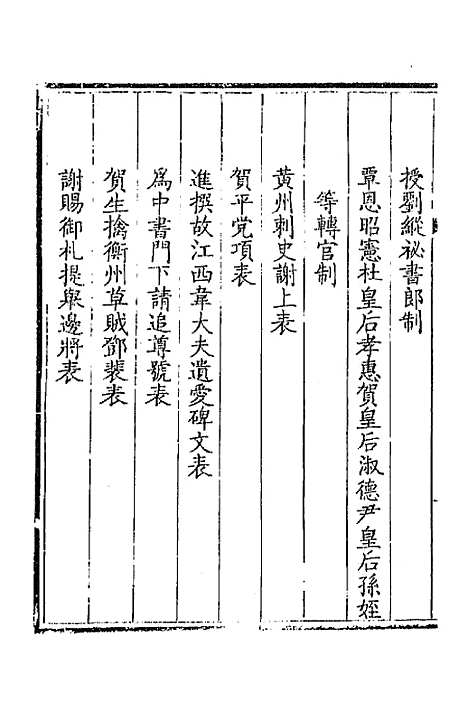 授劉縱祕書郎制
覃恩昭憲杜皇后孝惠賀皇后淑德尹皇后孫姪
等轉官制
黃州刺史謝上表
賀平党項表
進撰故江西韋大夫遺愛碑文表
爲中書門下請追尊號表
賀生擒衡州草賊鄧裴表
謝賜御札提舉邊將表